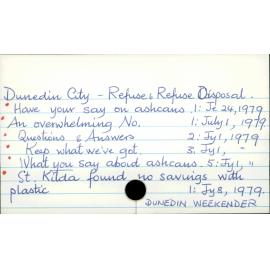 Dunedin City - Refuse & Refuse Disposal.
• Have your say on ashcans. 1: Je 24, 1979
• An overwhelming No. 1: July 1, 1979
• Questions & Answers 2: Jy 1, 1979
• Keep what we've got. 3: Jy 1, "
• What you say about ashcans. 5: Jy 1, "
• St. Kilda found no savings with
plastic 1: Jy 8, 1979.
DUNEDIN WEEKENDER